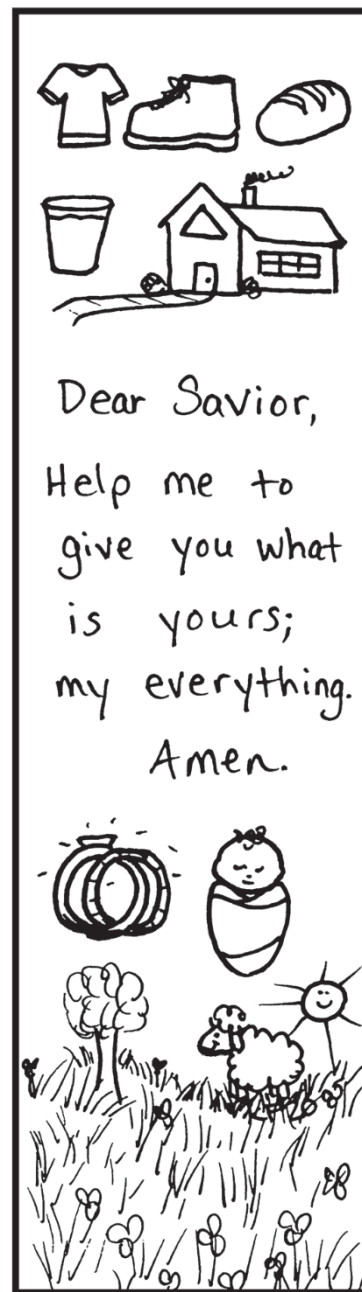 Dear Savior,
Help me to
give you what
is yours;
my everything.
Amen.